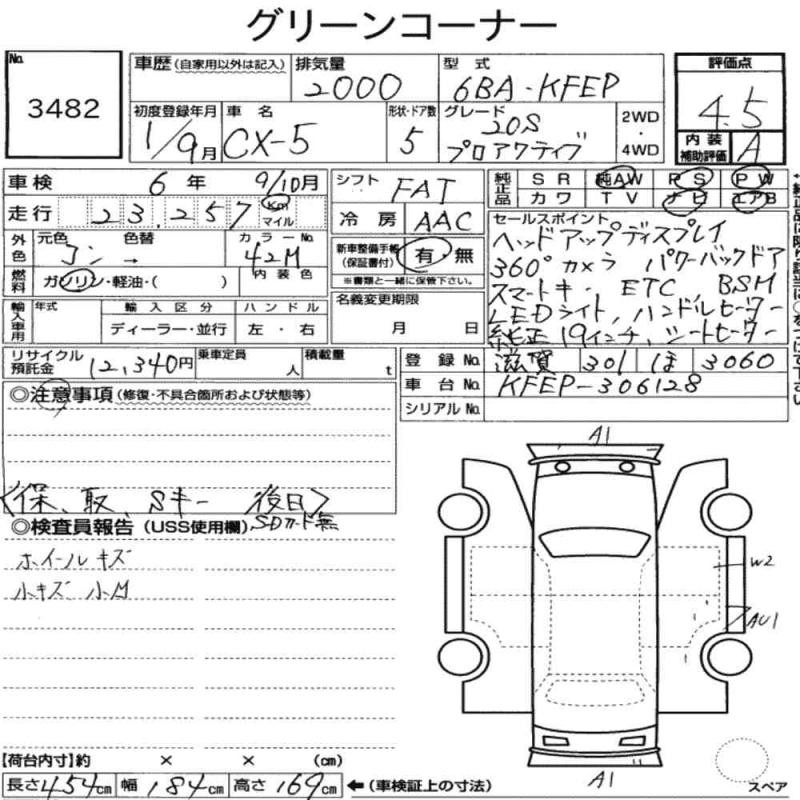 グリーンコーナー
No.
3482
車歴 (自家用以外は記入)
排気量
2000
型式
6BA-KFEP
評価点
4.5
初度登録年月
1/9月
車名
CX-5
形状・ドア数
5
グレード
20S
プロアクティブ
2WD
・
4WD
内装
補助評価
A
車検
6年 9/10月
シフト
FAT
純正品
SR 純AW PS PW
カワ TV ナビ エアB
走行
23,257
Km
マイル
冷房
AAC
セールスポイント
ヘッドアップディスプレイ
360°カメラ パワーバックドア
スマートキー ETC BSM
LEDライト, ハンドルヒーター
純正19インチ, シートヒーター
外色
元色 色替
コン →
カラーNo.
42M
新車整備手帳
(保証書付)
有・無
※書類と一緒に保管下さい。
燃料
ガソリン・軽油・( )
内装色
名義変更期限
月 日
輸入車用
年式
輸入区分
ディーラー・並行
ハンドル
左・右
リサイクル
預託金
12,340円
乗車定員
人
積載量
t
登録No.
滋賀 301 ほ 3060
車台No.
KFEP-306128
シリアルNo.
◎注意事項 (修復・不具合箇所および状態等)
<保、取、Sキー 後日>
SDカード無
◎検査員報告 (USS使用欄)
ホイールキズ
小キズ 小M
A1
W2
AU1
A1
スペア
【荷台内寸】約 × × (cm)
長さ454cm 幅184cm 高さ169cm ←(車検証上の寸法)